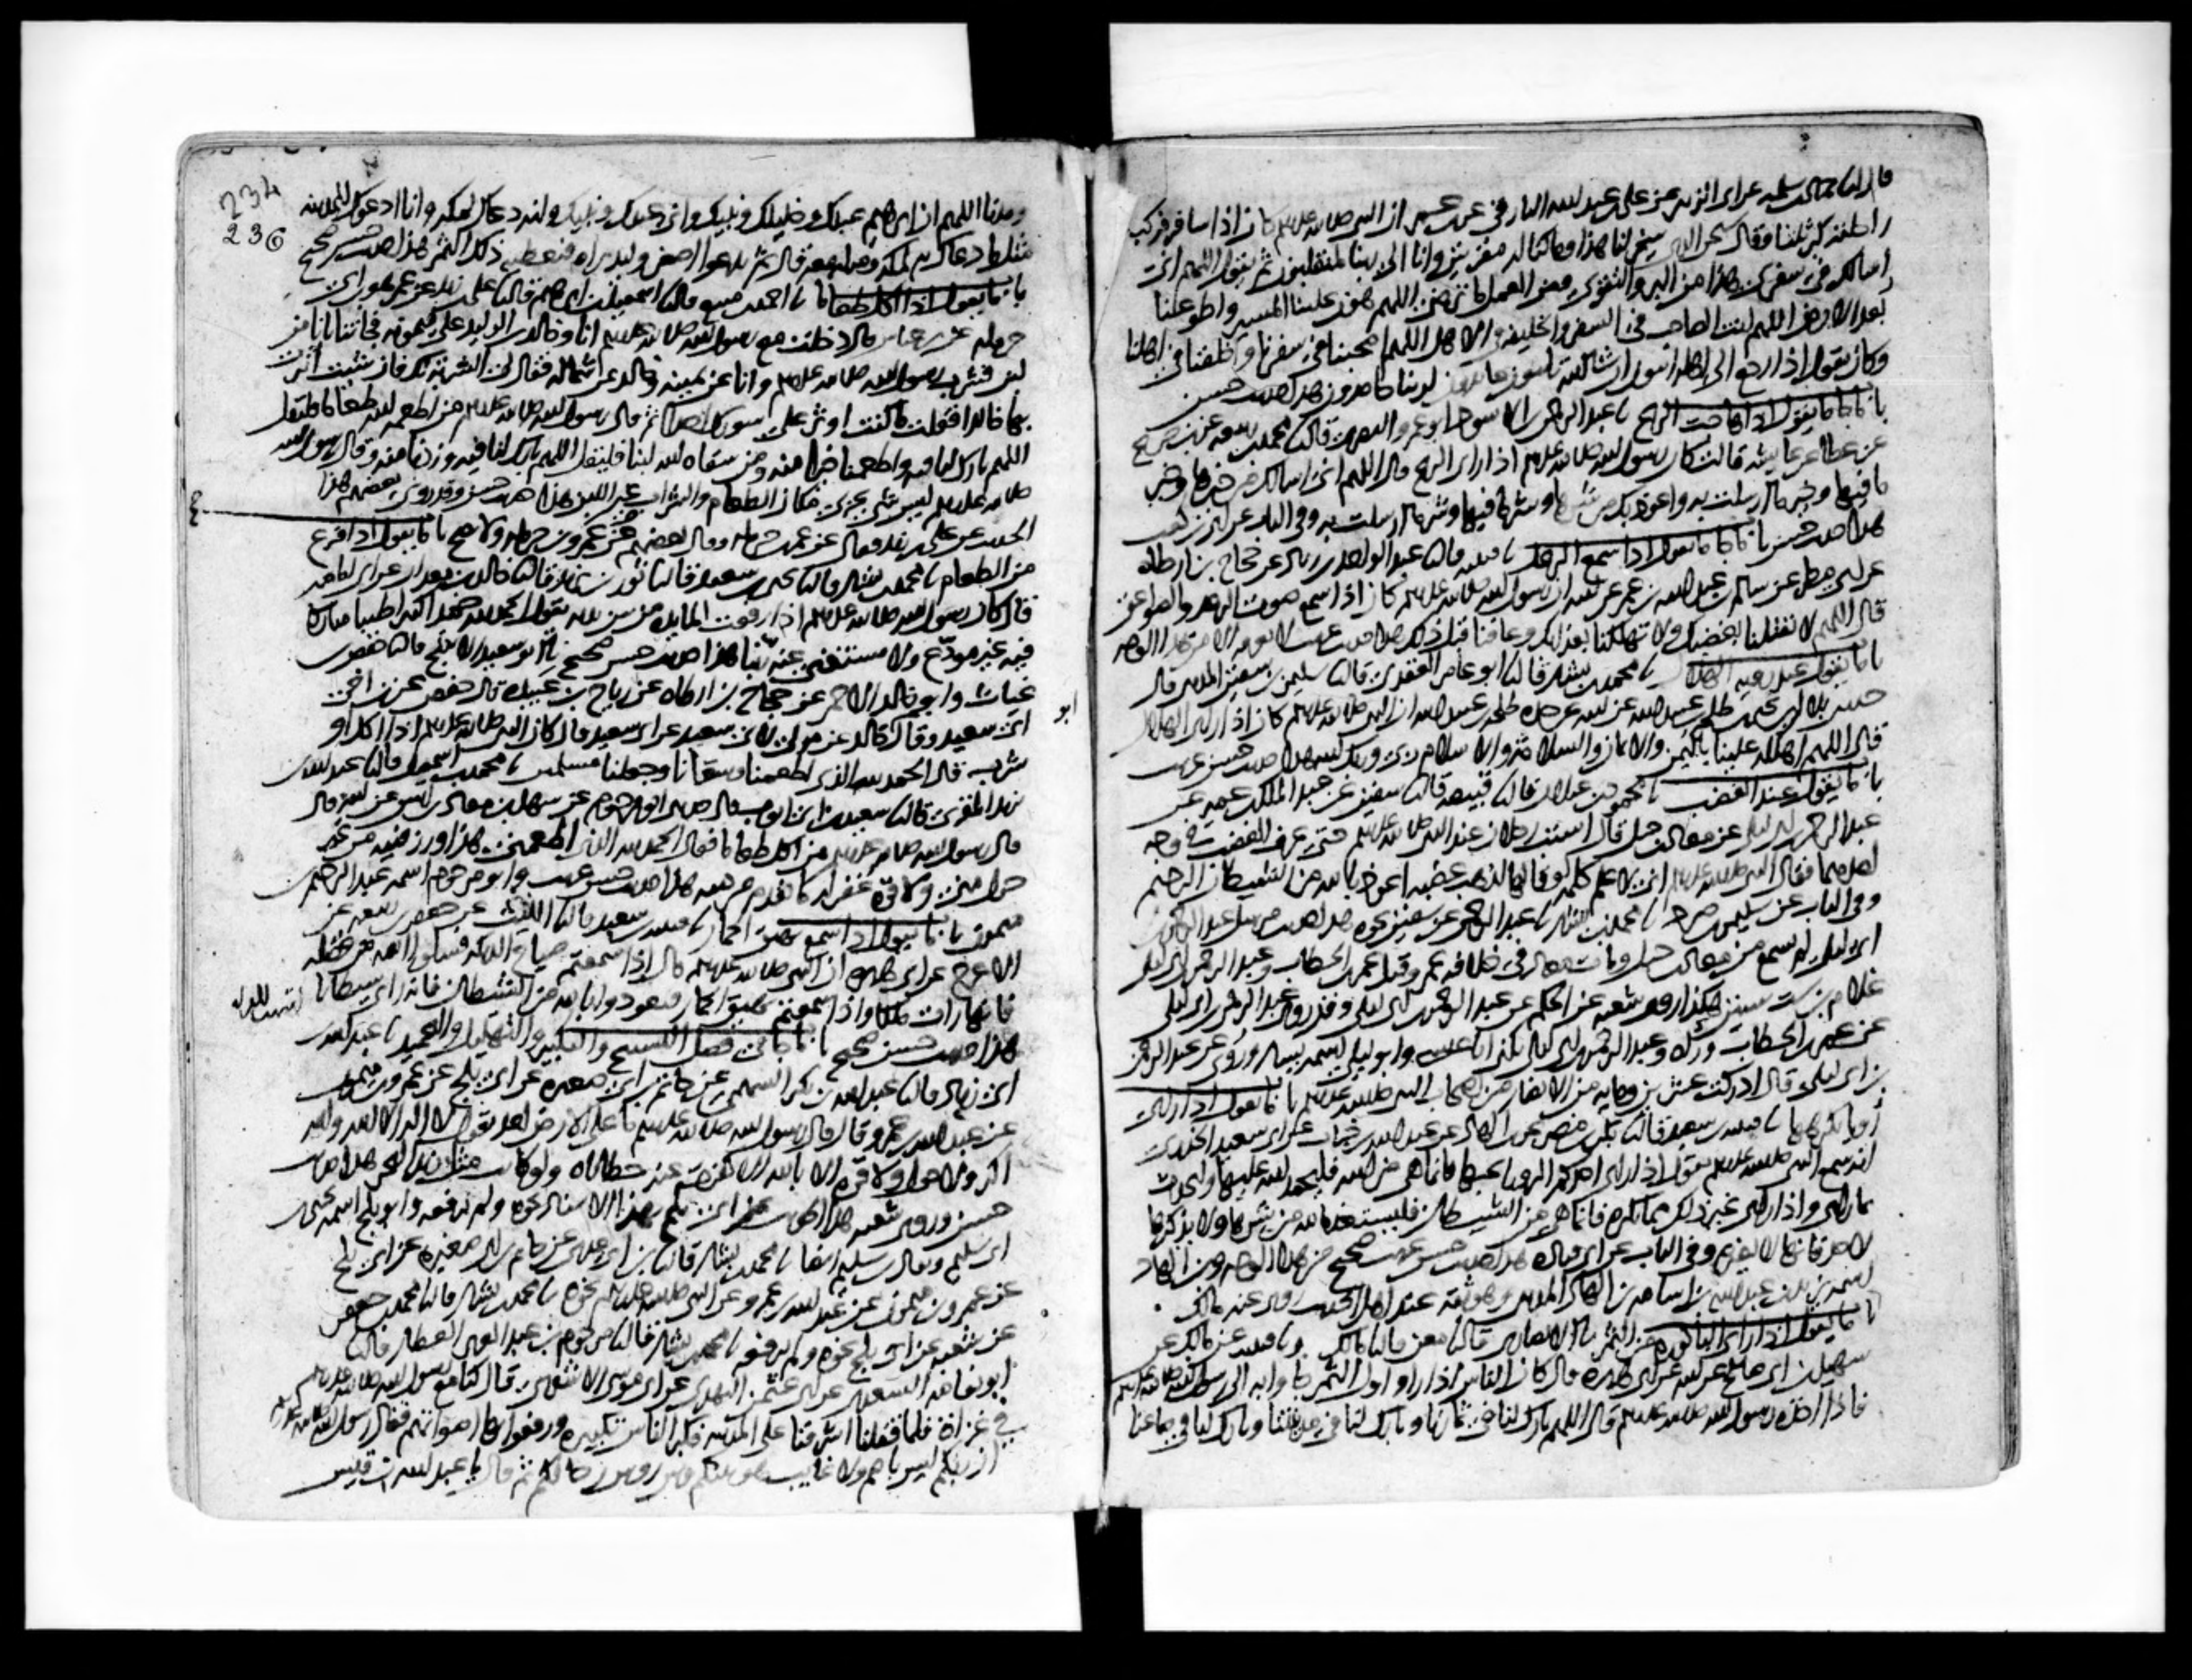 قال انا حماد بن سلمه عن ابى الزبير عن على بن عبد الله البارقى عن ابن عمر ان النبى صلى الله عليه وسلم كان اذا سافر فركب
راحلته كبر ثلثا وقال سبحان الذى سخر لنا هذا وما كنا له مقرنين وانا الى ربنا لمنقلبون ثم يقول اللهم انى
اسالك فى سفرى هذا من البر والتقوى ومن العمل ما ترضى اللهم هون علينا المسير واطو عنا
بعد الارض اللهم انت الصاحب فى السفر والخليفه فى الاهل اللهم اصحبنا فى سفرنا واخلفنا فى اهلنا
وكان يقول اذا رجع الى اهله ايبون ان شا الله تايبون عابدون لربنا حامدون هذا حديث حسن
باب ما يقول اذا هاجت الريح عبد الرحمن الاسود ابو عمرو البصرى قال نا محمد بن ربيعه عن ابن جريج
عن عطا عن عايشه قالت كان رسول الله صلى الله عليه وسلم اذا راى الريح قال اللهم انى اسالك من خيرها وخير
ما فيها وخير ما ارسلت به واعوذ بك من شرها وشر ما فيها وشر ما ارسلت به وفى الباب عن ابى بن كعب
هذا حديث حسن باب ما يقول اذا سمع الرعد نا قتيبه قال نا عبد الواحد بن زياد عن حجاج بن ارطاه
عن ابى مطر عن سالم بن عبد الله بن عمر عن ابيه ان رسول الله صلى الله عليه وسلم كان اذا سمع صوت الرعد والصواعق
قال اللهم لا تقتلنا بغضبك ولا تهلكنا بعذابك وعافنا قبل ذلك هذا حديث غريب لا نعرفه الا من هذا الوجه
باب ما يقول عند رويه الهلال نا محمد بن بشار قال نا ابو عامر العقدى قال نا سليمن بن سفين المدينى قال
حدثنى بلال بن يحيى بن طلحه بن عبيد الله عن ابيه عن جده طلحه بن عبيد الله ان النبى صلى الله عليه وسلم كان اذا راى الهلال
قال اللهم اهلله علينا باليمن والايمان والسلامه والاسلام ربى وربك الله هذا حديث حسن غريب
باب ما يقول عند الغضب نا محمود بن غيلان قال نا قبيصه قال نا سفين عن عبد الملك بن عمير عن
عبد الرحمن بن ابى ليلى عن معاذ بن جبل قال استب رجلان عند النبى صلى الله عليه وسلم حتى عرف الغضب فى وجه
احدهما فقال النبى صلى الله عليه وسلم انى لاعلم كلمه لو قالها لذهب غضبه اعوذ بالله من الشيطان الرجيم
وفى الباب عن سليمن بن صرد نا محمد بن بشار نا عبد الرحمن عن سفين نحوه هذا حديث مرسل عبد الرحمن بن
ابى ليلى لم يسمع من معاذ بن جبل ومات معاذ فى خلافه عمر وقتل عمر بن الخطاب وعبد الرحمن بن ابى ليلى
غلام بن ست سنين هكذا روى شعبه عن الحكم عن عبد الرحمن بن ابى ليلى وقد روى عبد الرحمن بن ابى ليلى
عن عمر بن الخطاب وراه وعبد الرحمن بن ابى ليلى يكنى ابا عيسى وابو ليلى اسمه يسار وروى عن عبد الرحمن
بن ابى ليلى قال ادركت عشرين ومايه من الانصار من اصحاب النبى صلى الله عليه وسلم باب ما يقول اذا راى
رويا يكرهها نا قتيبه بن سعيد قال نا بكر بن مضر عن ابن الهاد عن عبد الله بن خباب عن ابى سعيد الخدرى
انه سمع النبى صلى الله عليه وسلم يقول اذا راى احدكم الرويا يحبها فانما هى من الله فليحمد الله عليها وليحدث
بما راى واذا راى غير ذلك مما يكره فانما هى من الشيطان فليستعذ بالله من شرها ولا يذكرها
لاحد فانها لا تضره وفى الباب عن ابى قتاده هذا حديث حسن غريب صحيح من هذا الوجه وابن الهاد
اسمه يزيد بن عبد الله بن اسامه بن الهاد المدينى وهو ثقه عند اهل الحديث روى عنه مالك
باب ما يقول اذا راى الباكوره من الثمر نا الانصارى قال نا معن قال نا مالك ونا قتيبه عن مالك عن
سهيل بن ابى صالح عن ابيه عن ابى هريره قال كان الناس اذا راوا اول الثمر جاوا به الى رسول الله صلى الله عليه وسلم
فاذا اخذه رسول الله صلى الله عليه وسلم قال اللهم بارك لنا فى ثمارنا وبارك لنا فى مدينتنا وبارك لنا فى صاعنا
234
236
ومدنا اللهم ان ابرهيم عبدك وخليلك ونبيك وانى عبدك ونبيك وانه دعاك لمكه وانا ادعوك للمدينه
بمثل ما دعاك به لمكه ومثله معه قال ثم يدعوا اصغر وليد يراه فيعطيه ذلك الثمر هذا حديث حسن صحيح
باب ما يقول اذا اكل طعاما نا احمد بن منيع قال نا اسمعيل بن ابرهيم قال نا على بن زيد عن عمر هو ابن
حرمله عن ابن عباس قال دخلت مع رسول الله صلى الله عليه وسلم انا وخالد بن الوليد على ميمونه فجاتنا بانا من
لبن فشرب رسول الله صلى الله عليه وسلم وانا عن يمينه وخالد عن شماله فقال لى الشربه لك فان شيت اثرت
بها خالدا فقلت ما كنت اوثر على سورك احدا ثم قال رسول الله صلى الله عليه وسلم من اطعمه الله طعاما فليقل
اللهم بارك لنا فيه واطعمنا خيرا منه ومن سقاه الله لبنا فليقل اللهم بارك لنا فيه وزدنا منه وقال رسول الله
صلى الله عليه وسلم ليس شى يجزى مكان الطعام والشراب غير اللبن هذا حديث حسن وقد روى بعضهم هذا
الحديث عن على بن زيد فقال عن عمر بن حرمله وقال بعضهم عن عمرو بن حرمله ولا يصح باب ما يقول اذا فرغ
من الطعام نا محمد بن بشار قال نا يحيى بن سعيد قال نا ثور بن يزيد قال نا خالد بن معدان عن ابى امامه
قال كان رسول الله صلى الله عليه وسلم اذا رفعت المايده من بين يديه يقول الحمد لله حمدا كثيرا طيبا مباركا
فيه غير مودع ولا مستغنى عنه ربنا هذا حديث حسن صحيح نا ابو سعيد الاشج قال نا حفص بن
غياث وابو خالد الاحمر عن حجاج بن ارطاه عن رياح بن عبيده قال حفص عن ابن اخى
ابى سعيد وقال ابو خالد عن مولى لابى سعيد عن ابى سعيد قال كان النبى صلى الله عليه وسلم اذا اكل او
شرب قال الحمد لله الذى اطعمنا وسقانا وجعلنا مسلمين نا محمد بن اسمعيل قال نا عبد الله بن
يزيد المقرى قال نا سعيد بن ابى ايوب قال حدثنى ابو مرحوم عن سهل بن معاذ بن انس عن ابيه قال
قال رسول الله صلى الله عليه وسلم من اكل طعاما فقال الحمد لله الذى اطعمنى هذا ورزقنيه من غير
حول منى ولا قوه غفر له ما تقدم من ذنبه هذا حديث حسن غريب وابو مرحوم اسمه عبد الرحيم بن
ميمون باب ما يقول اذا سمع نهيق الحمار نا قتيبه بن سعيد قال نا الليث عن جعفر بن ربيعه عن
الاعرج عن ابى هريره ان النبى صلى الله عليه وسلم قال اذا سمعتم صياح الديكه فسلوا الله من فضله
فانها رات ملكا واذا سمعتم نهيق الحمار فتعوذوا بالله من الشيطان فانه راى شيطانا
هذا حديث حسن صحيح باب ما جا فى فضل التسبيح والتكبير والتهليل والتحميد نا عبد الله بن
ابى زياد قال نا عبد الله بن بكر السهمى عن حاتم بن ابى صغيره عن ابى بلج عن عمرو بن ميمون
عن عبد الله بن عمرو قال قال رسول الله صلى الله عليه وسلم ما على الارض احد يقول لا اله الا الله والله
اكبر ولا حول ولا قوه الا بالله الا كفرت عنه خطاياه ولو كانت مثل زبد البحر هذا حديث
حسن وروى شعبه هذا الحديث عن ابى بلج بهذا الاسناد نحوه ولم يرفعه وابو بلج اسمه يحيى بن
ابى سليم ويقال بن سليم ايضا نا محمد بن بشار قال نا بن ابى عدى عن حاتم بن ابى صغيره عن ابى بلج
عن عمرو بن ميمون عن عبد الله بن عمرو عن النبى صلى الله عليه وسلم نحوه نا محمد بن بشار قال نا محمد بن جعفر
عن شعبه عن ابى بلج نحوه ولم يرفعه نا محمد بن بشار قال نا مرحوم بن عبد العزيز العطار قال نا
ابو نعامه السعدى عن ابى عثمن النهدى عن ابى موسى الاشعرى قال كنا مع رسول الله صلى الله عليه وسلم
فى غزاه فلما قفلنا اشرفنا على المدينه فكبر الناس تكبيره ورفعوا بها اصواتهم فقال رسول الله صلى الله عليه وسلم
ان ربكم ليس باصم ولا غايب هو بينكم وبين روس رحالكم ثم قال يا عبد الله بن قيس
ابو